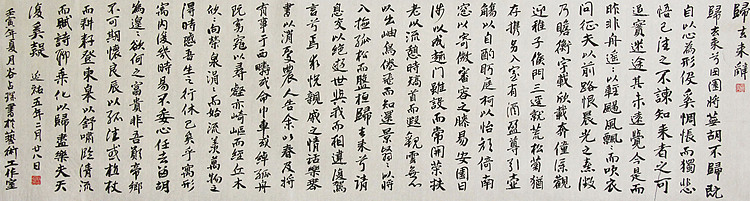 歸去來辭
歸去來兮田園將蕪胡不歸既
自以心為形役奚惆悵而獨悲
悟已往之不諫知來者之可
追實迷途其未遠覺今是而
昨非舟遙遙以輕颺風飄飄而吹衣
問征夫以前路恨晨光之熹微
乃瞻衡宇載欣載奔僮僕歡
迎稚子候門三逕就荒松菊猶
存攜幼入室有酒盈尊引壺
觴以自酌眄庭柯以怡顏倚南
窗以寄傲審容之膝易安園日
涉以成趣門雖設而常關策扶
老以流憩時矯首而遐觀雲無心
以出岫鳥倦飛而知還景翳翳以將
入撫孤松而盤桓歸去來兮請
息交以絕遊世與我而相遺復駕
言兮焉求悅親戚之情話樂琴
書以消憂農人告余以春及將
有事于西疇或命巾車或棹孤舟
既窈窕以尋壑亦崎嶇而經丘木
欣欣而向榮泉涓涓而始流羨萬物之
得時感吾生之行休已矣乎寓形
宇內復幾時曷不委心任去留胡
為遑遑欲何之富貴非吾願帝鄉
不可期懷良辰以孤往或植杖
而耘耔登東皋以舒嘯臨清流
而賦詩聊乘化以歸盡樂夫天
復奚疑 五年二月廿八日
壬寅年夏月谷占 書於藝術工作室